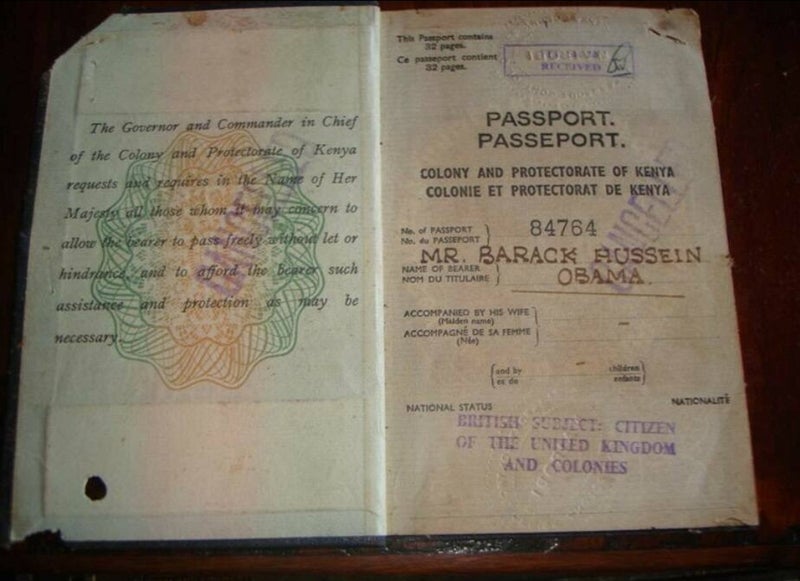 The Governor and Commander in Chief
of the Colony and Protectorate of Kenya
requests and requires in the Name of Her
Majesty all those whom it may concern to
allow the bearer to pass freely without let or
hindrance, and to afford the bearer such
assistance and protection as may be
necessary.
This Passport contains
32 pages.
Ce passeport contient
32 pages.
RECEIVED
PASSPORT.
PASSEPORT.
COLONY AND PROTECTORATE OF KENYA
COLONIE ET PROTECTORAT DE KENYA
No. of PASSPORT
No. du PASSEPORT
84764
MR. BARACK HUSSEIN
NAME OF BEARER
NOM DU TITULAIRE
OBAMA.
ACCOMPANIED BY HIS WIFE
(Maiden name)
ACCOMPAGNÉ DE SA FEMME
(Née)
and by children
et de enfants
NATIONAL STATUS NATIONALITÉ
BRITISH SUBJECT: CITIZEN
OF THE UNITED KINGDOM
AND COLONIES
CANCELLED
CANCELLED